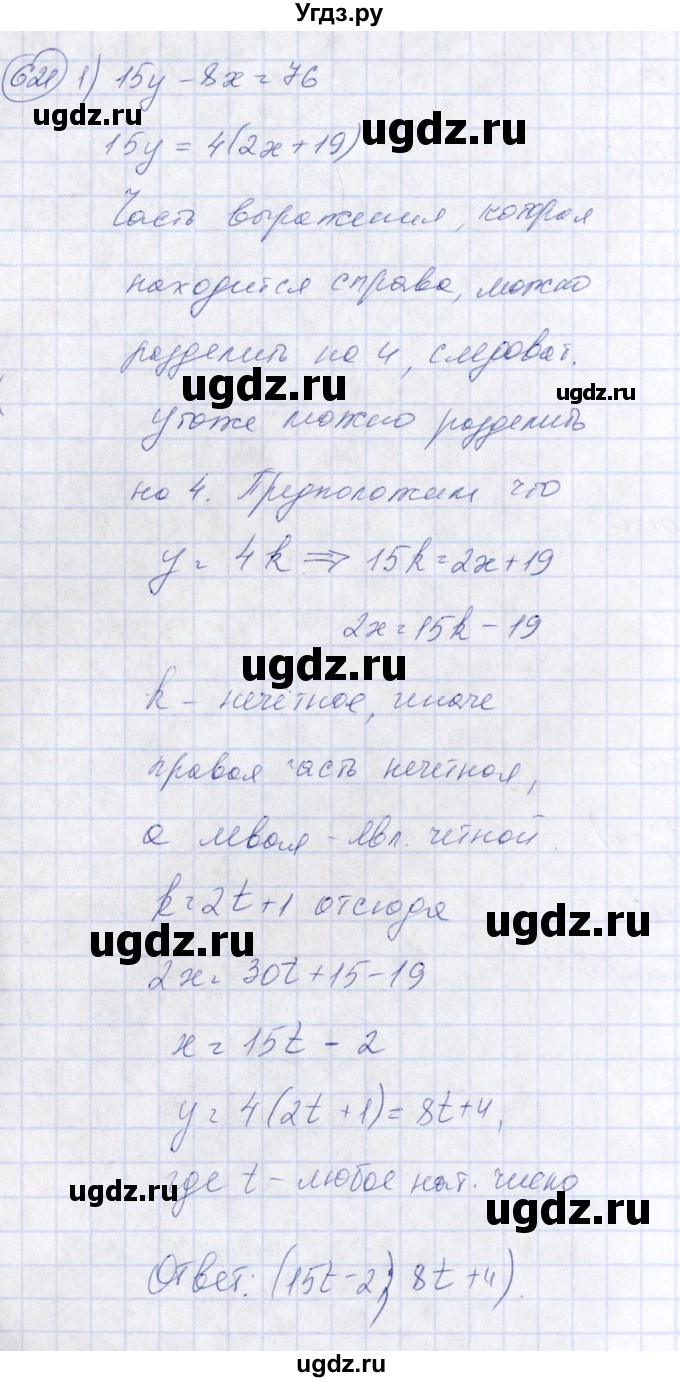 Угдз.ру
621 1) 15y - 8x = 76
ugdz.ru
15y = 4(2x+19) ugdz.ru
Часть выражения, которая
находится справа, можно
разделить на 4, следоват.
ugdz.ru ugdz.ru
y тоже можно разделить
на 4. Предположим что
y = 4k ⇒ 15k = 2x+19
2x = 15k - 19
ugdz.ru
k - нечётное, иначе
правая часть нечетная,
а левая - явл. чётной.
k = 2t+1 отсюда
ugdz.ru ugdz.ru
2x = 30t + 15 - 19
x = 15t - 2
y = 4(2t + 1) = 8t+4,
где t - любое нат. число
ugdz.ru ugdz.ru
Ответ: (15t-2; 8t+4).
ugdz.ru